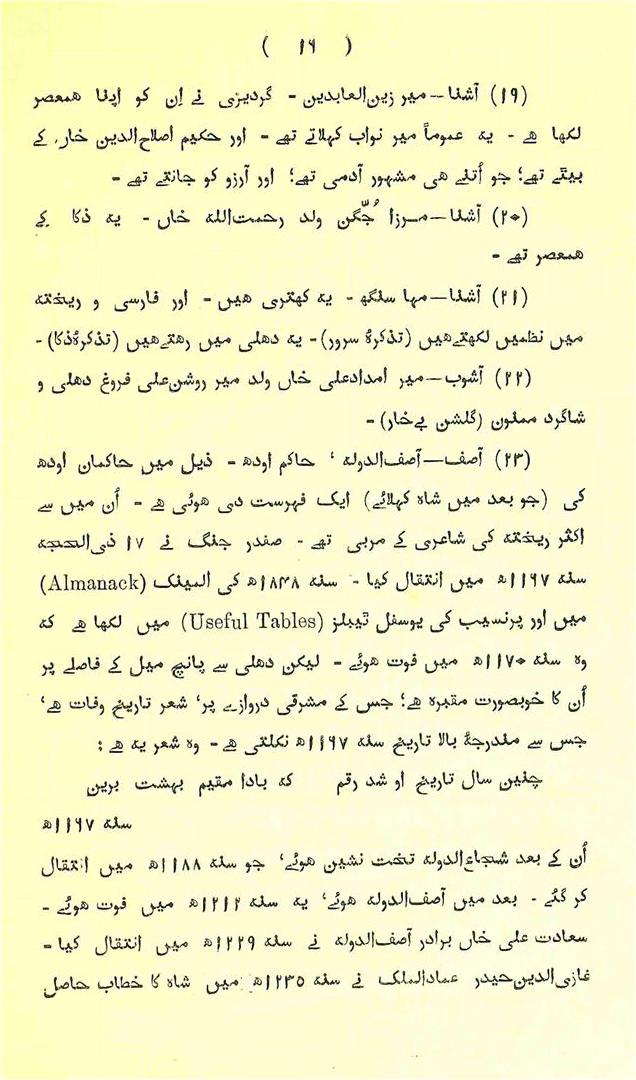 ( ۱۶ )
(۱۹) آشنا—میر زین‌العابدین - گردیزی نے اِن کو اپنا همعصر
لکھا هے - یه عموماً میر نواب کہلاتے تھے - اور حکیم اصلاح‌الدین خاں کے
بیٹے تھے؛ جو اُتنے هی مشہور آدمی تھے؛ اور آرزو کو جانتے تھے -
(۲۰) آشنا—مرزا جُگّن ولد رحمت‌الله خاں - یه ذکا کے
همعصر تھے -
(۲۱) آشنا—مہا سنگھ - یه کھتری هیں - اور فارسی و ریخته
میں نظمیں لکھتے‌هیں (تذکرۂ سرور) - یه دهلی میں رهتے‌هیں (تذکرۂ‌ذکا) -
(۲۲) آشوب—میر امدادعلی خاں ولد میر روشن‌علی فروغ دهلی و
شاگرد ممنون (گلشن بے‌خار) -
(۲۳) آصف—آصف‌الدوله ‘ حاکم اودھ - ذیل میں حاکمان اودھ
کی (جو بعد میں شاه کہلائے) ایک فہرست دی هوئی هے - اُن میں سے
اکثر ریخته کی شاعری کے مربی تھے - صفدر جنگ نے ۱۷ ذی‌الحجه
سنه ۱۱۶۷ھ میں انتقال کیا - سنه ۱۸۳۸ھ کی المینک (Almanack)
میں اور پرنسیب کی یوسفل ٹیبلز (Useful Tables) میں لکھا هے که
وه سنه ۱۱۷۰ھ میں فوت هوئے - لیکن دهلی سے پانچ میل کے فاصلے پر
اُن کا خوبصورت مقبره هے؛ جس کے مشرقی دروازے پر‘ شعر تاریخ وفات هے‘
جس سے مندرجۂ بالا تاریخ سنه ۱۱۶۷ھ نکلتی هے - وه شعر یه هے :
چنین سال تاریخ او شد رقم که بادا مقیم بهشت برین
سنه ۱۱۶۷ھ
اُن کے بعد شجاع‌الدوله تخت نشین هوئے‘ جو سنه ۱۱۸۸ھ میں انتقال
کر گئے - بعد میں آصف‌الدوله هوئے‘ یه سنه ۱۲۱۲ھ میں فوت هوئے -
سعادت علی خاں برادر آصف‌الدوله نے سنه ۱۲۲۹ھ میں انتقال کیا -
غازی‌الدین‌حیدر عمادالملک نے سنه ۱۲۳۵ھ میں شاه کا خطاب حاصل